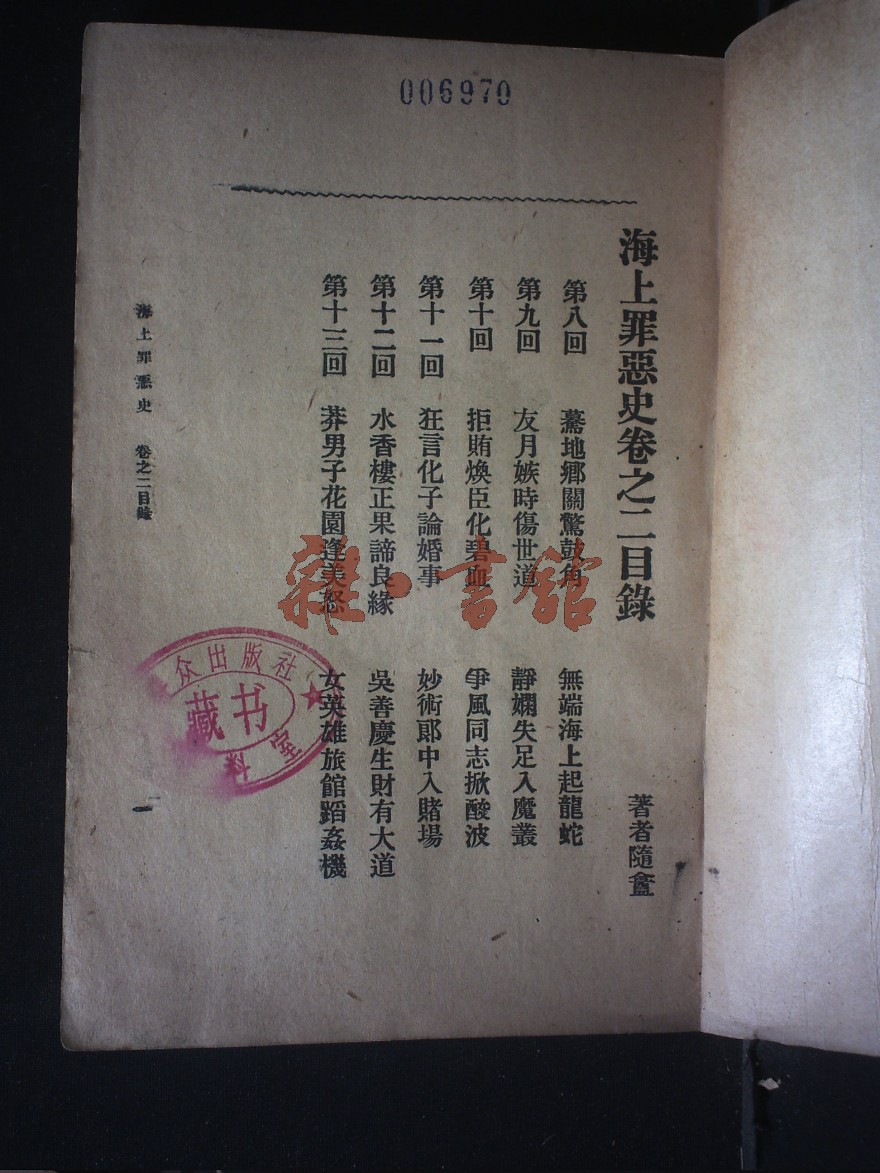 006970
海上罪惡史卷之二目錄
著者隨盦
第八回 驀地鄉關驚鼓角 無端海上起龍蛇
第九回 友月嫉時傷世道 靜嫻失足入魔叢
第十回 拒賄煥臣化碧血 爭風同志掀酸波
第十一回 狂言化子論婚事 妙術郎中入賭場
第十二回 水香樓正果諦良緣 吳善慶生財有大道
第十三回 莽男子花園逢美怒 女英雄旅館蹈姦機
海上罪惡史 卷之二目錄
一
众出版社
藏书
料室
雜·書館